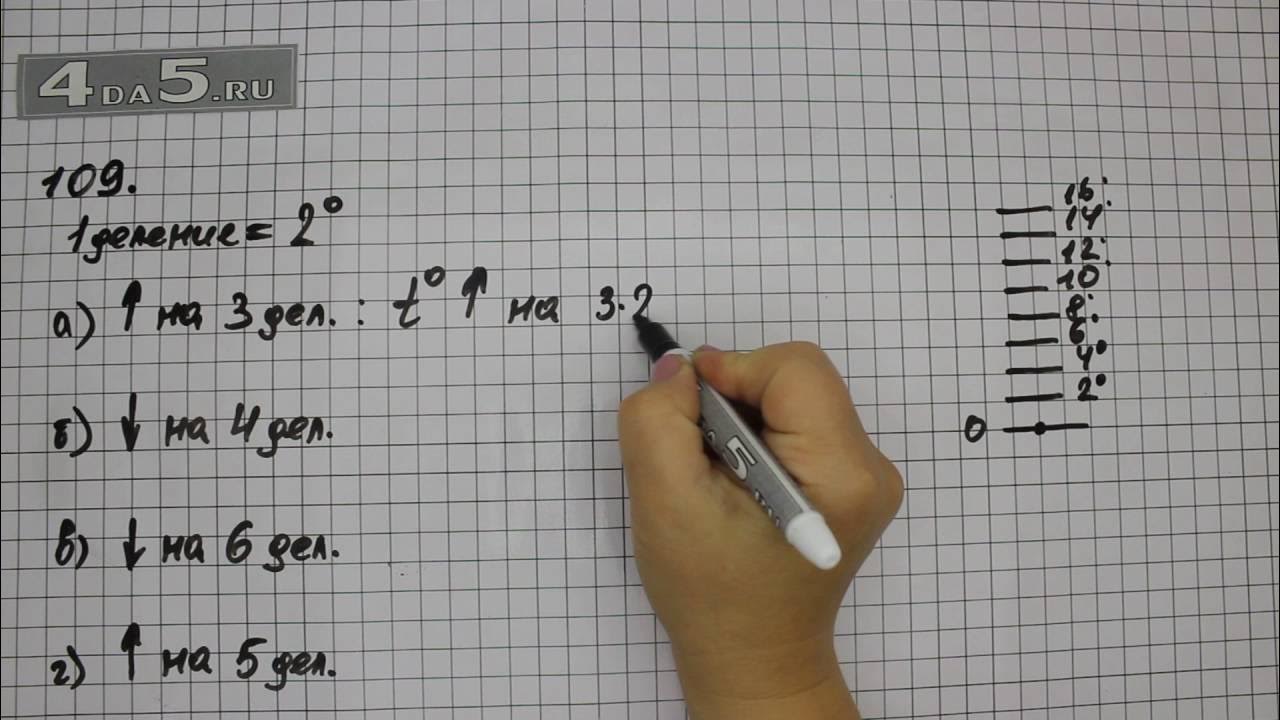 4DA5.RU
109.
1 деление = 2°
а) ↑ на 3 дел. : t° ↑ на 3·2
б) ↓ на 4 дел.
в) ↓ на 6 дел.
г) ↑ на 5 дел.
16°
14°
12°
10°
8°
6°
4°
2°
0
5